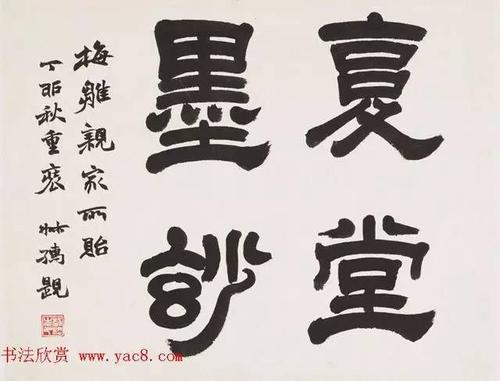 复堂
墨玅
梅雛親家所貽
丁卯秋重裝 尗孺題
书法欣赏 www.yac8.com